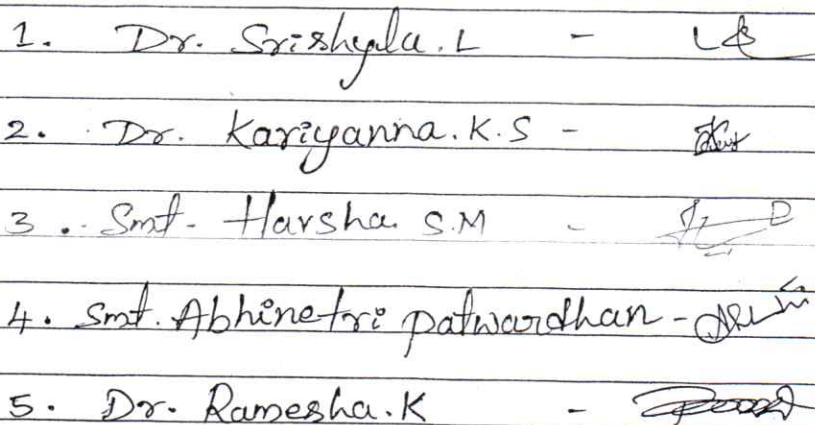 1. Dr. Srishyla. L -
2. Dr. Kariyanna. K. S -
3. Smt. Harsha S.M -
4. Smt. Abhinetri patwardhan -
5. Dr. Ramesha. K -